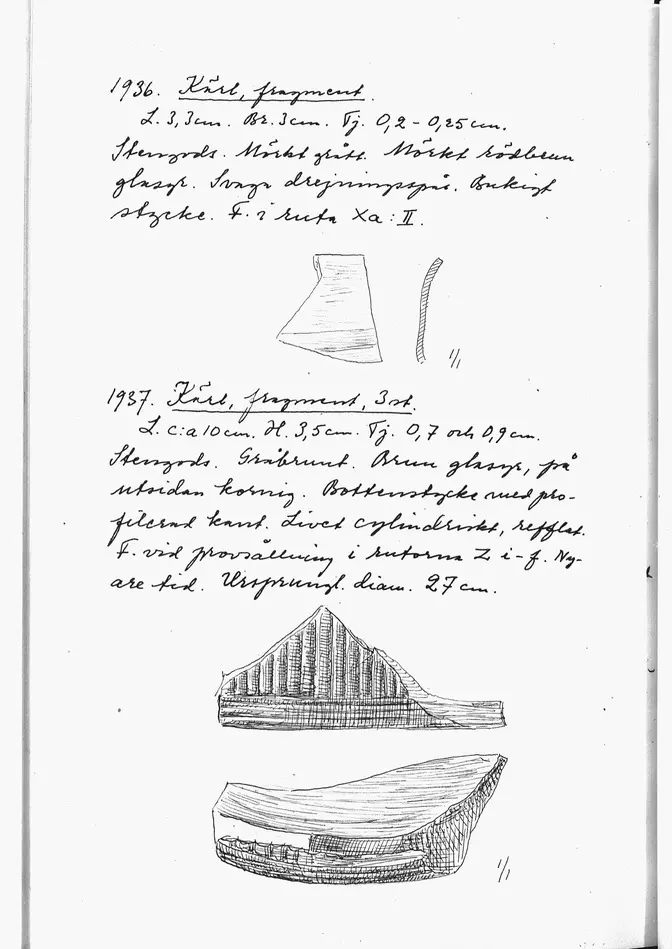 1936. Kärl, fragment.
L. 3,3cm. Br. 3cm. Tj. 0,2 - 0,25 cm.
Stengods. Mörkt grått. Mörkt rödbrun
glasyr. Svaga drejningsspår. Bukigt
stycke. F. i ruta Xa : II.
1/1
1937. Kärl, fragment, 3 st.
L. c:a 10 cm. H. 3,5 cm. Tj. 0,7 och 0,9 cm.
Stengods. Gråbrunt. Brun glasyr, på
utsidan kornig. Bottenstycke med pro-
filerad kant. Livet cylindriskt, refflat.
F. vid provsållning i rutorna Z i-f. Ny-
are tid. Ursprungl. diam. 27 cm.
1/1